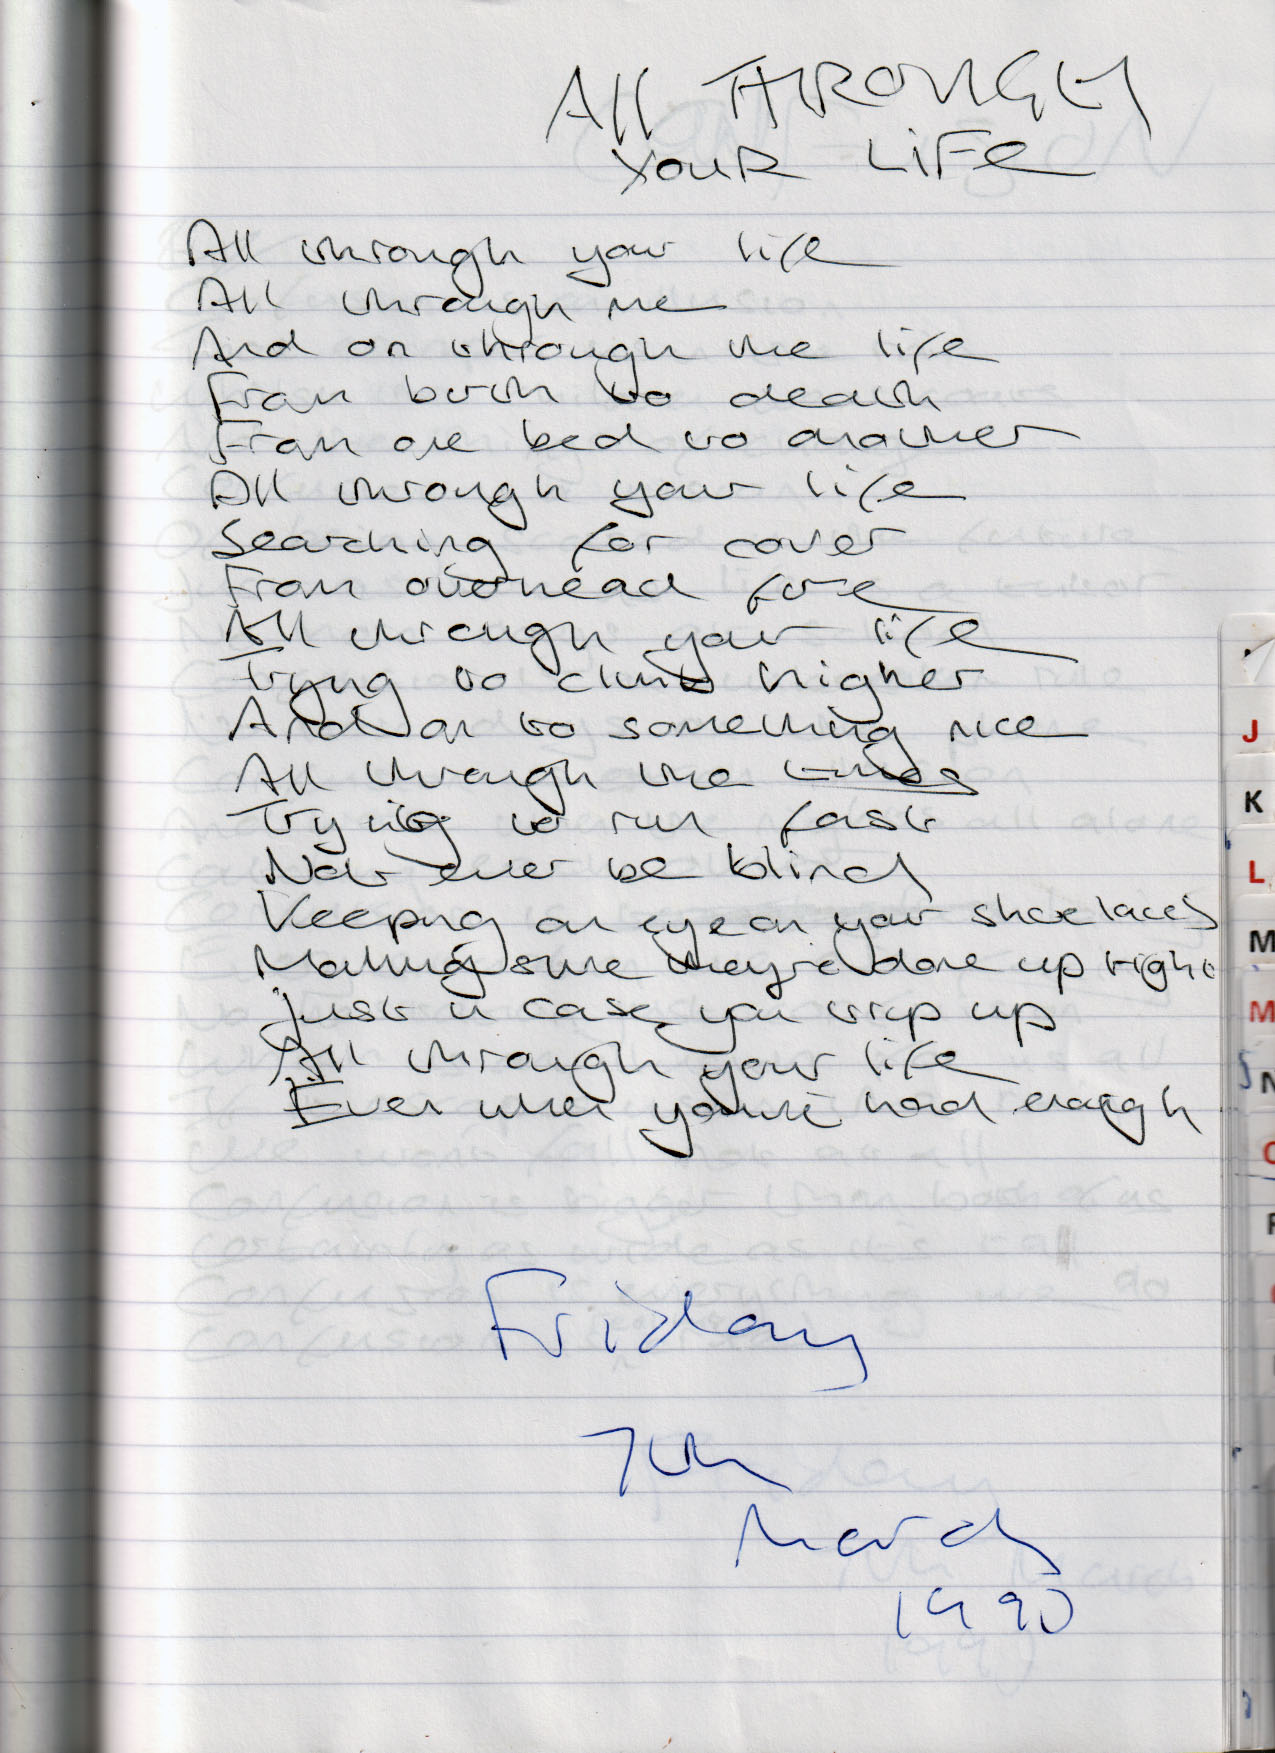 All THROUGH
YOUR LIFE
All through your life
All through me
And on through the life
From birth to death
From one bed to another
All through your life
Searching for cover
From overhead fire
All through your life
Trying to climb higher
And on to something nice
All through the times
Trying to run fast
Not ever be blind
Keeping an eye on your shoelaces
Making sure they're done up right
just in case you trip up
All through your life
Even when you've had enough
Friday
7th
March
1990
J
K
L
M
M
N